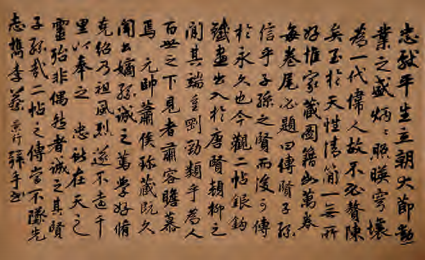 忠獻平生立朝大節勳
業之盛炳炳照暎穹壤
為一代偉人故不必贅陳
矣至於天性清簡一無所
好惟家藏圖籍幾萬卷
每卷尾必題曰傳賢子孫
信乎子孫之賢而後可傳
於永久也今觀二帖銀鈎
鐵畫出入於唐賢顏柳之
間其端重剛勁類乎為人
百世之下見者肅容瞻慕
焉元帥蕭侯珎藏既久
聞公嫡孫誠之篤學好脩
克紹乃祖風烈遂不遠千
里以奉之忠獻在天之
靈殆非偶然者誠之其賢
子孫哉二帖之傳當不隊先
志雋李